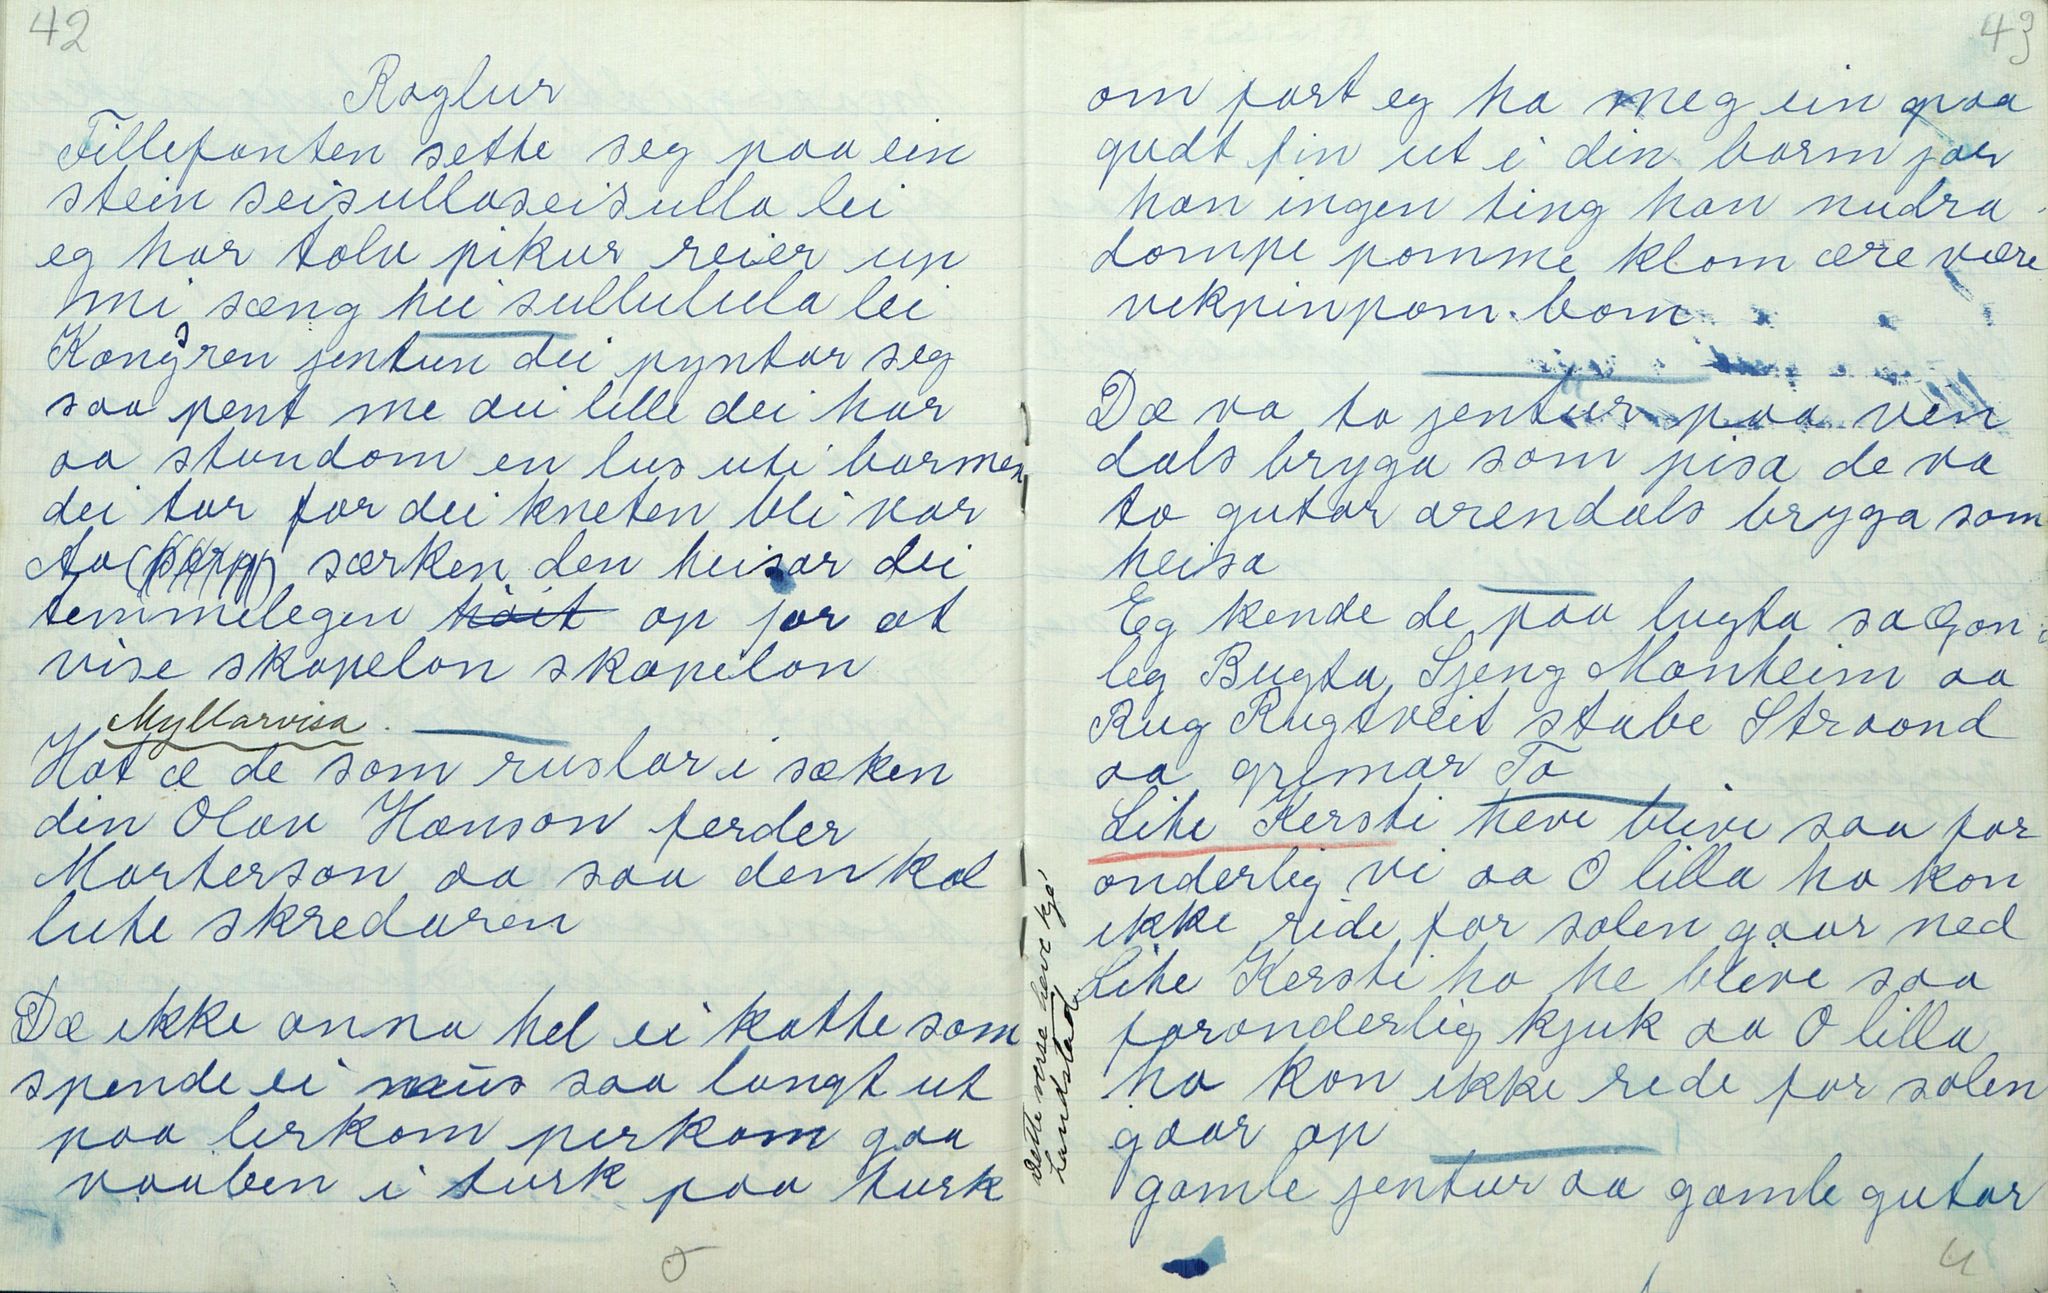 42
Roglur
Fillefanten sette seg paa ein
stein seisullaseisulla lei
eg har tolv pikur reier up
mi sæng hei sullulula lei
jentun dei pyntar seg
saa pent me dei lille dei har
aa stundom en lus uti barmen
dei tar for dei kneten bli var
særken den heisar dei
temmelegen høit op for at
vise skapelon skapelon
Myllarvisa.
Hat æ de som ruslar i sæken
din Olav Hanson ferder
Morterson aa saa den kal
lute skredaren
Dæ ikke anna hel ei katte som
spende ei mus saa langt ut
paa lerkom perkom gaa
vaaben i turk paa turk
43
om fort eg ha meg ein paa
gudt fin ut i din barm for
han ingen ting han nudra
dompe pomme klom ære være
vekpinpom. bom
Dæ va to jentur paa ven
dals bryga som pisa de va
to gutar arendals bryga som
heisa
Eg kende de paa lugta sa Gon
leg Bugta, Sjeng Manheim aa
Rug Rugtveit stabe Straand
aa grimar Ta
Lite Kersti heve blive saa for
onderlig vi aa O lilla ho kan
ikke ride for solen gaar ned
Lite Kersti ho he bleve saa
foranderlig kjuk aa O lilla
ho kan ikke rede for solen
gaar op
gamle jentur aa gamle gutar
Dette verse heve kje'
Landstad.